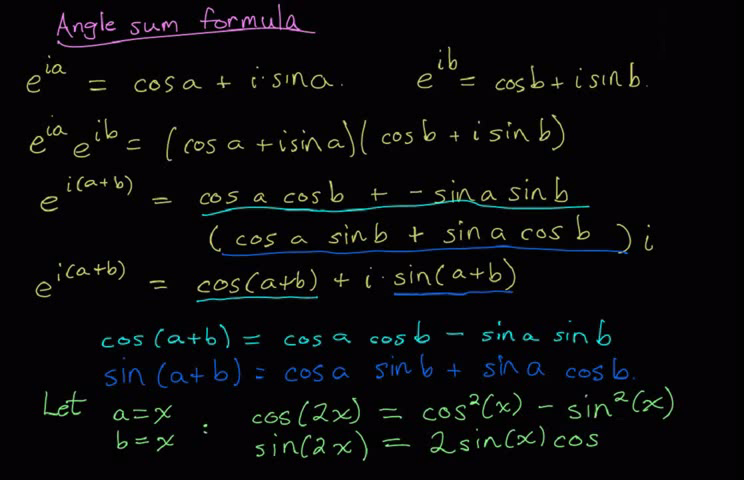 Angle sum formula
e^{ia} = cos a + i · sin a.    e^{ib} = cos b + i sin b.
e^{ia} e^{ib} = (cos a + i sin a)(cos b + i sin b)
e^{i(a+b)} = cos a cos b + - sin a sin b
(cos a sin b + sin a cos b) i
e^{i(a+b)} = cos(a+b) + i · sin(a+b)
cos (a+b) = cos a cos b - sin a sin b
sin (a+b) = cos a sin b + sin a cos b.
Let a = x : cos(2x) = cos²(x) - sin²(x)
b = x sin(2x) = 2 sin(x) cos